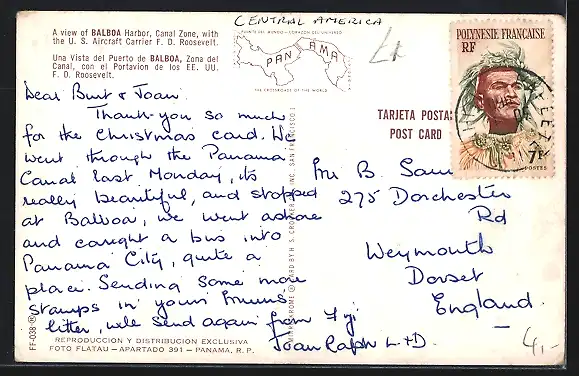 CENTRAL AMERICA
A view of BALBOA Harbor, Canal Zone, with
the U. S. Aircraft Carrier F. D. Roosevelt.
Una Vista del Puerto de BALBOA, Zona del
Canal, con el Portavion de los EE. UU.
F. D. Roosevelt.
PUENTE DEL MUNDO - CORAZON DEL UNIVERSO
PANAMA
THE CROSSROADS OF THE WORLD
POLYNESIE FRANÇAISE
RF
7F
POSTES
TARJETA POSTA
POST CARD
Dear Burt & Joan.
Thank-you so much
for the Christmas card. We
went through the Panama
Canal last Monday, its
really beautiful, and stopped
at Balboa, we went ashore
and caught a bus into
Panama City, quite a
place. Sending some more
stamps in yours
letter, we'll send again from Fiji
Joan Ralph L+D.
Mr B. Sam
275 Dorchester
Rd
Weymouth
Dorset
England
4,-
FF-038
REPRODUCCION Y DISTRIBUCION EXCLUSIVA
FOTO FLATAU - APARTADO 391 - PANAMA, R. P.
MIRRO-KROME ® CARD BY H. S. CROCKER CO., INC. SAN FRANCISCO 1